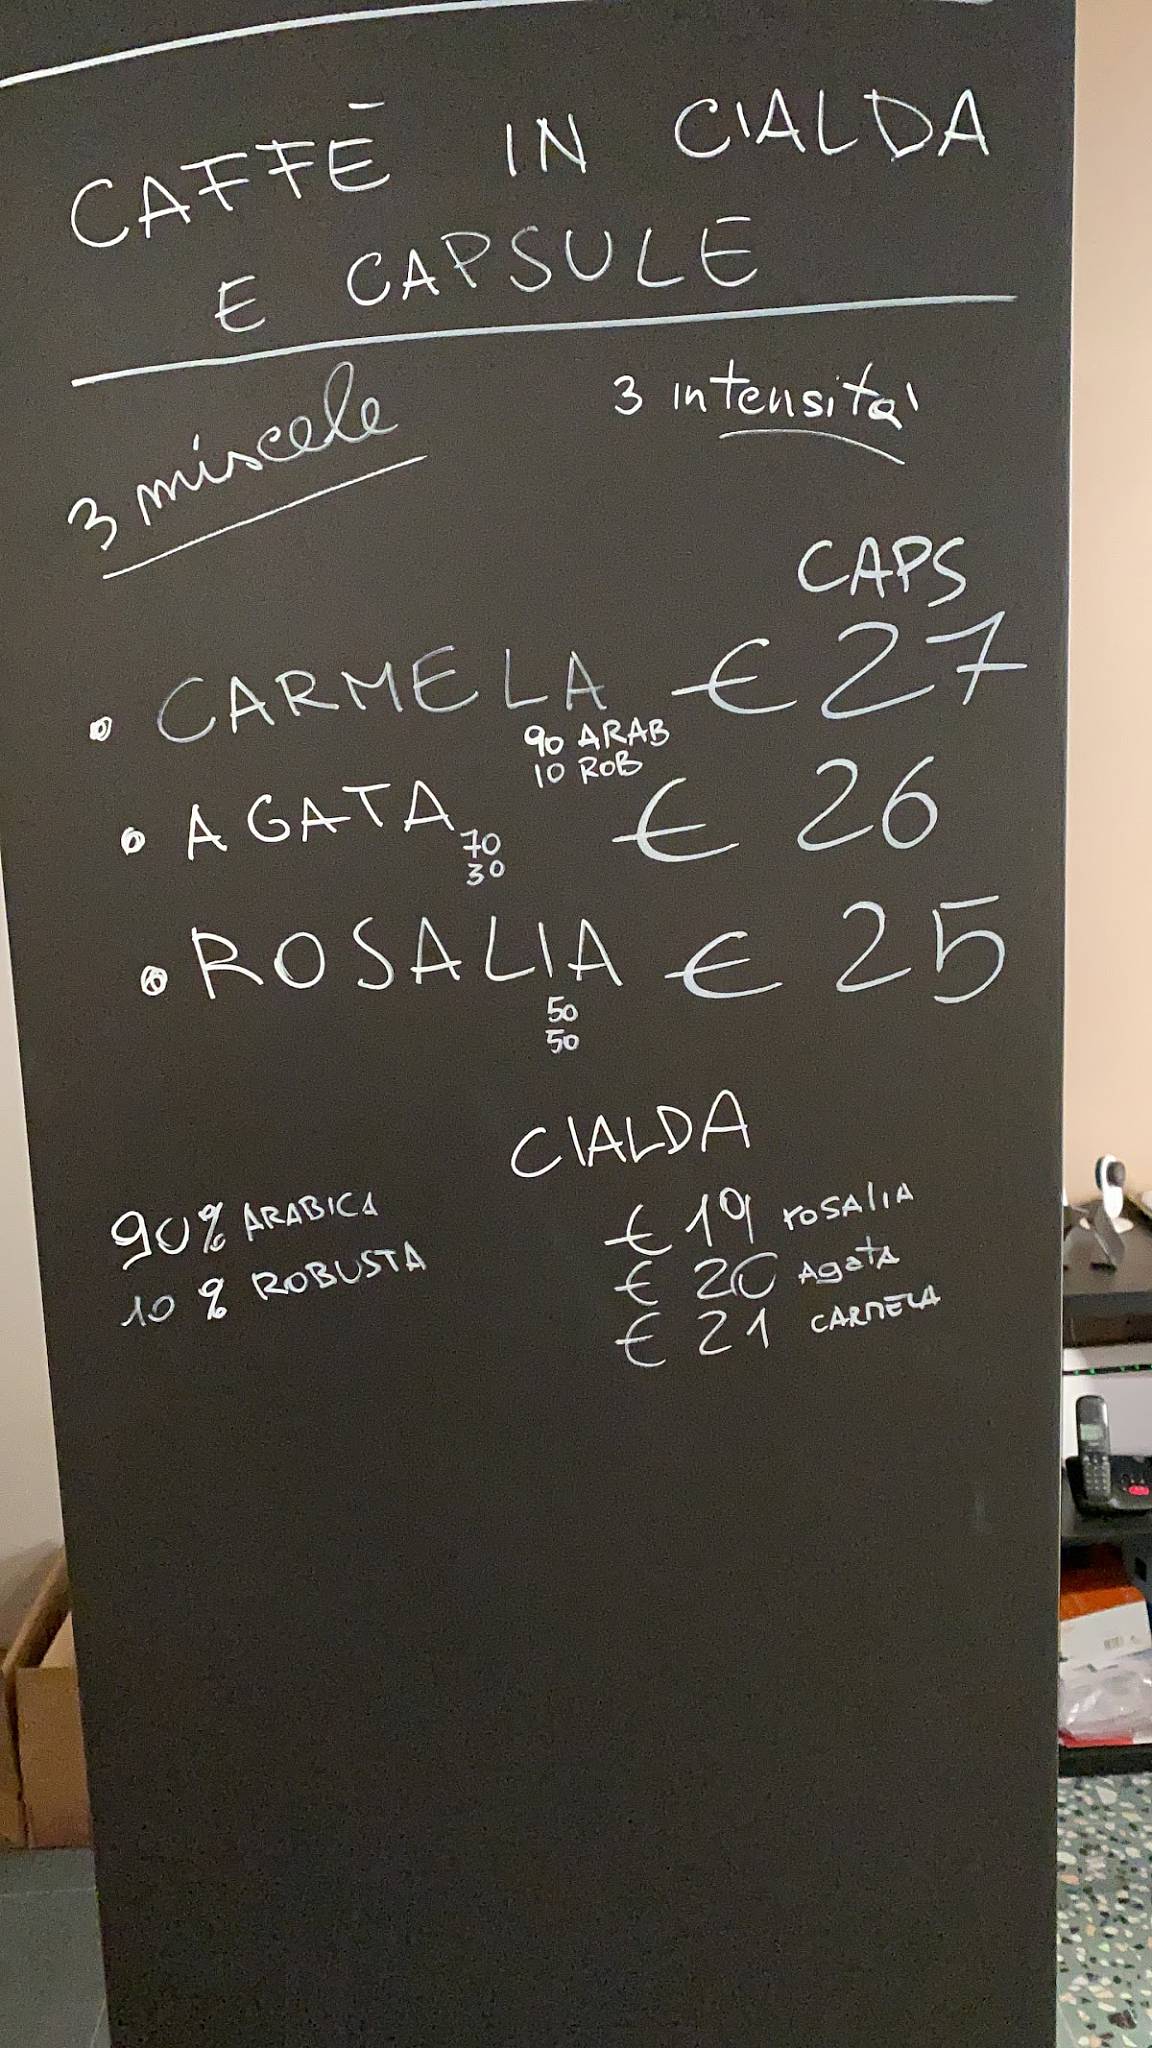 CAFFĒ IN CIALDA
E CAPSULE
3 miscele
3 intensita'
CAPS
• CARMELA € 27
90 ARAB
10 ROB
• AGATA € 26
70
30
• ROSALIA € 25
50
50
CIALDA
90% ARABICA
10 % ROBUSTA
€ 19 rOSALIA
€ 20 Agata
€ 21 CARMELA